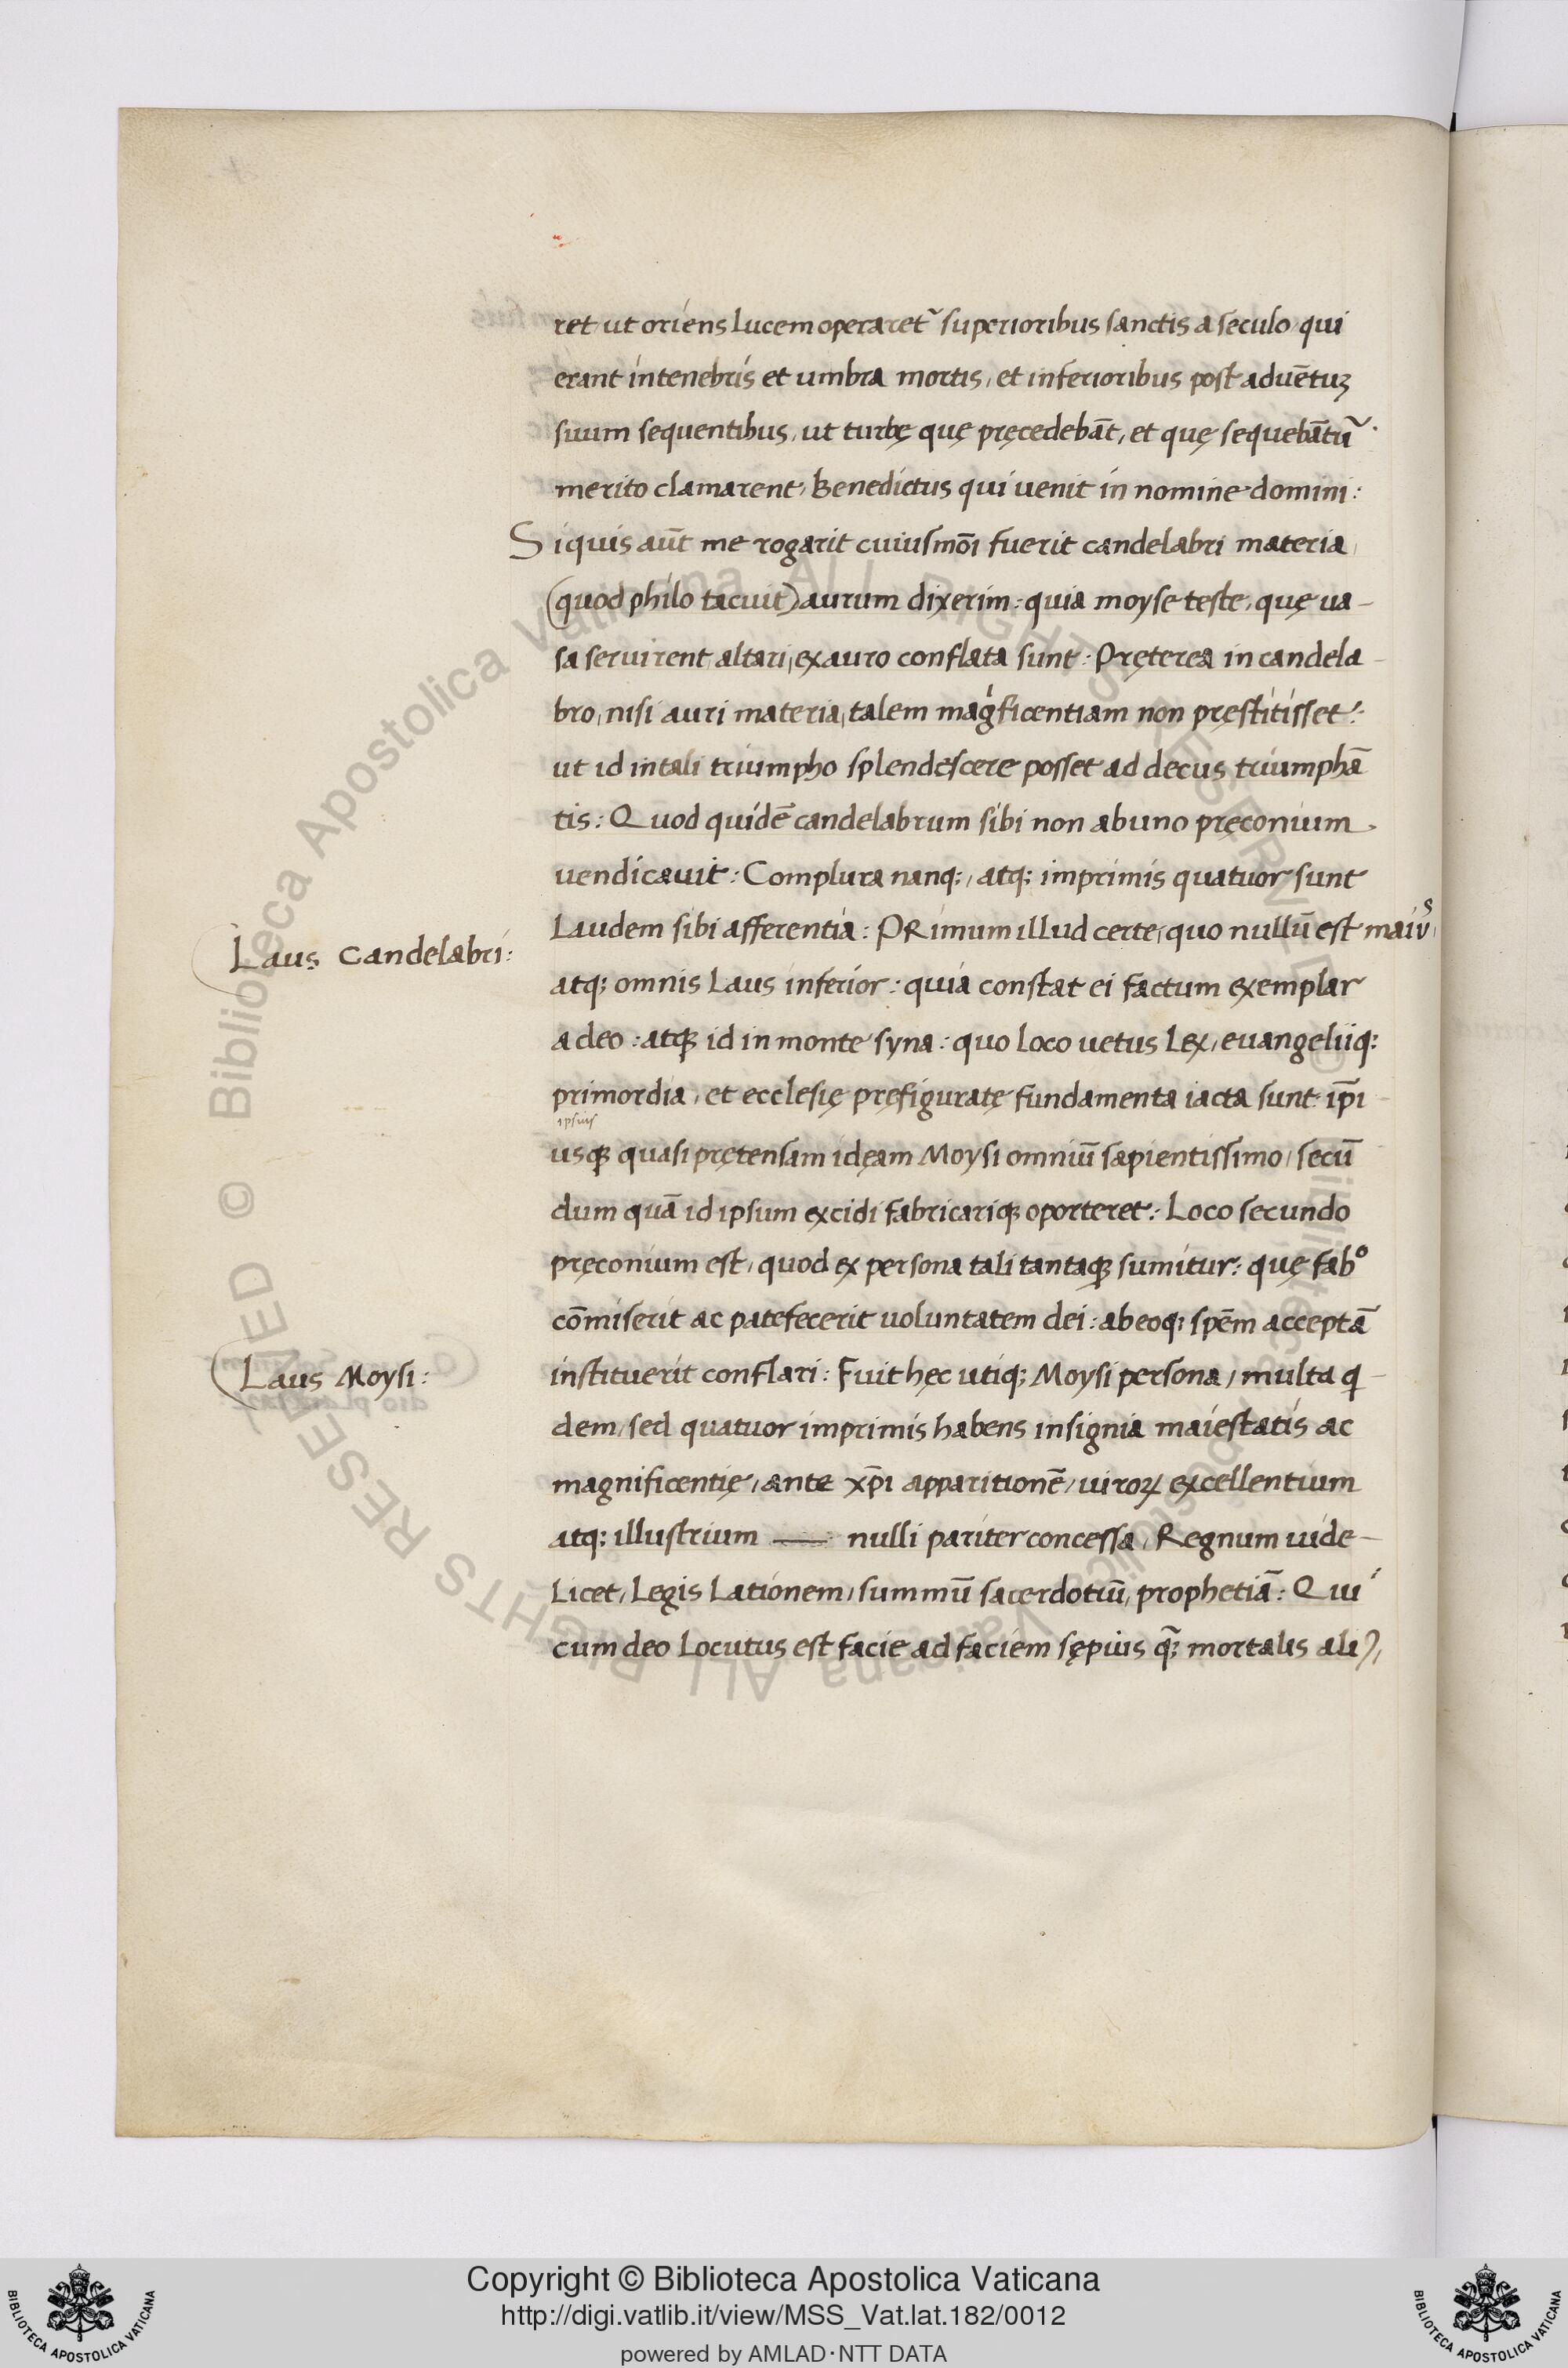 ret ut oriens lucem operaret᷑ superioribus sanctis a seculo qui
erant in tenebris et umbra mortis, et inferioribus post aduētuꝫ
suum sequentibus, ut turbę quę pręcedebāt, et quę sequebātu᷑.
merito clamarent, Benedictus qui uenit in nomine domini:
Siquis aūt me rogarit cuiusmōi fuerit candelabri materia,
(quod philo tacuit) aurum dixerim: quia moyse teste, quę ua-
sa seruirent altari, ex auro conflata sunt: Pręterea in candela-
bro, nisi auri materia, talem magᷤficentiam non pręstitisset:
ut id in tali triumpho splendescere posset ad decus triumphā
tis: Quod quidē candelabrum sibi non ab uno pręconium
uendicauit: Complura nanq;, atq; imprimis quatuor sunt
Laudem sibi afferentia: PRimum illud certe, quo nullū est maiuˢ,
Laus Candelabri:
atq; omnis Laus inferior: quia constat ei factum exemplar
a deo: atqꝫ id in monte syna: quo loco uetus Lex, euangeliiq;
primordia, et ecclesię pręfiguratę fundamenta iacta sunt ip̄i
ipsius
usqꝫ quasi prętensam idęam Moysi omniū sapientissimo, secū
dum quā id ipsum excidi fabricariqꝫ oporteret: Loco secundo
pręconium est, quod ex persona tali tantaqꝫ sumitur: quę fabº
cōmiserit ac patefecerit uoluntatem dei: ab eoq; spēm acceptā
Laus Moysi:
instituerit conflari: Fuit hęc utiq; Moysi persona, multa q
dem, sed quatuor imprimis habens insignia maiestatis ac
magnificentię, ante xp̄i apparitionē, uiroꝝ excellentium
atq; illustrium — nulli pariter concessa, Regnum uide-
Licet, Legis Lationem, summū sacerdotiū, prophetiā: Qui
cum deo Locutus est facie ad faciem sępius q̄; mortalis ali
Copyright © Biblioteca Apostolica Vaticana
http://digi.vatlib.it/view/MSS_Vat.lat.182/0012
powered by AMLAD·NTT DATA
BIBLIOTECA APOSTOLICA VATICANA
BIBLIOTECA APOSTOLICA VATICANA
© Biblioteca Apostolica Vaticana ALL RIGHTS RESERVED
© Biblioteca Apostolica Vaticana ALL RIGHTS RESERVED